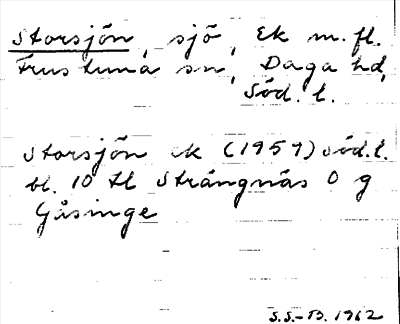 Storsjön, sjö, Ek m.fl.
Frustuna sn, Daga hd,
Söd. l.
Storsjön ek (1959) Söd.l.
bl. 10 tl Strängnäs O g
Gåsinge
S.S.-B. 1962